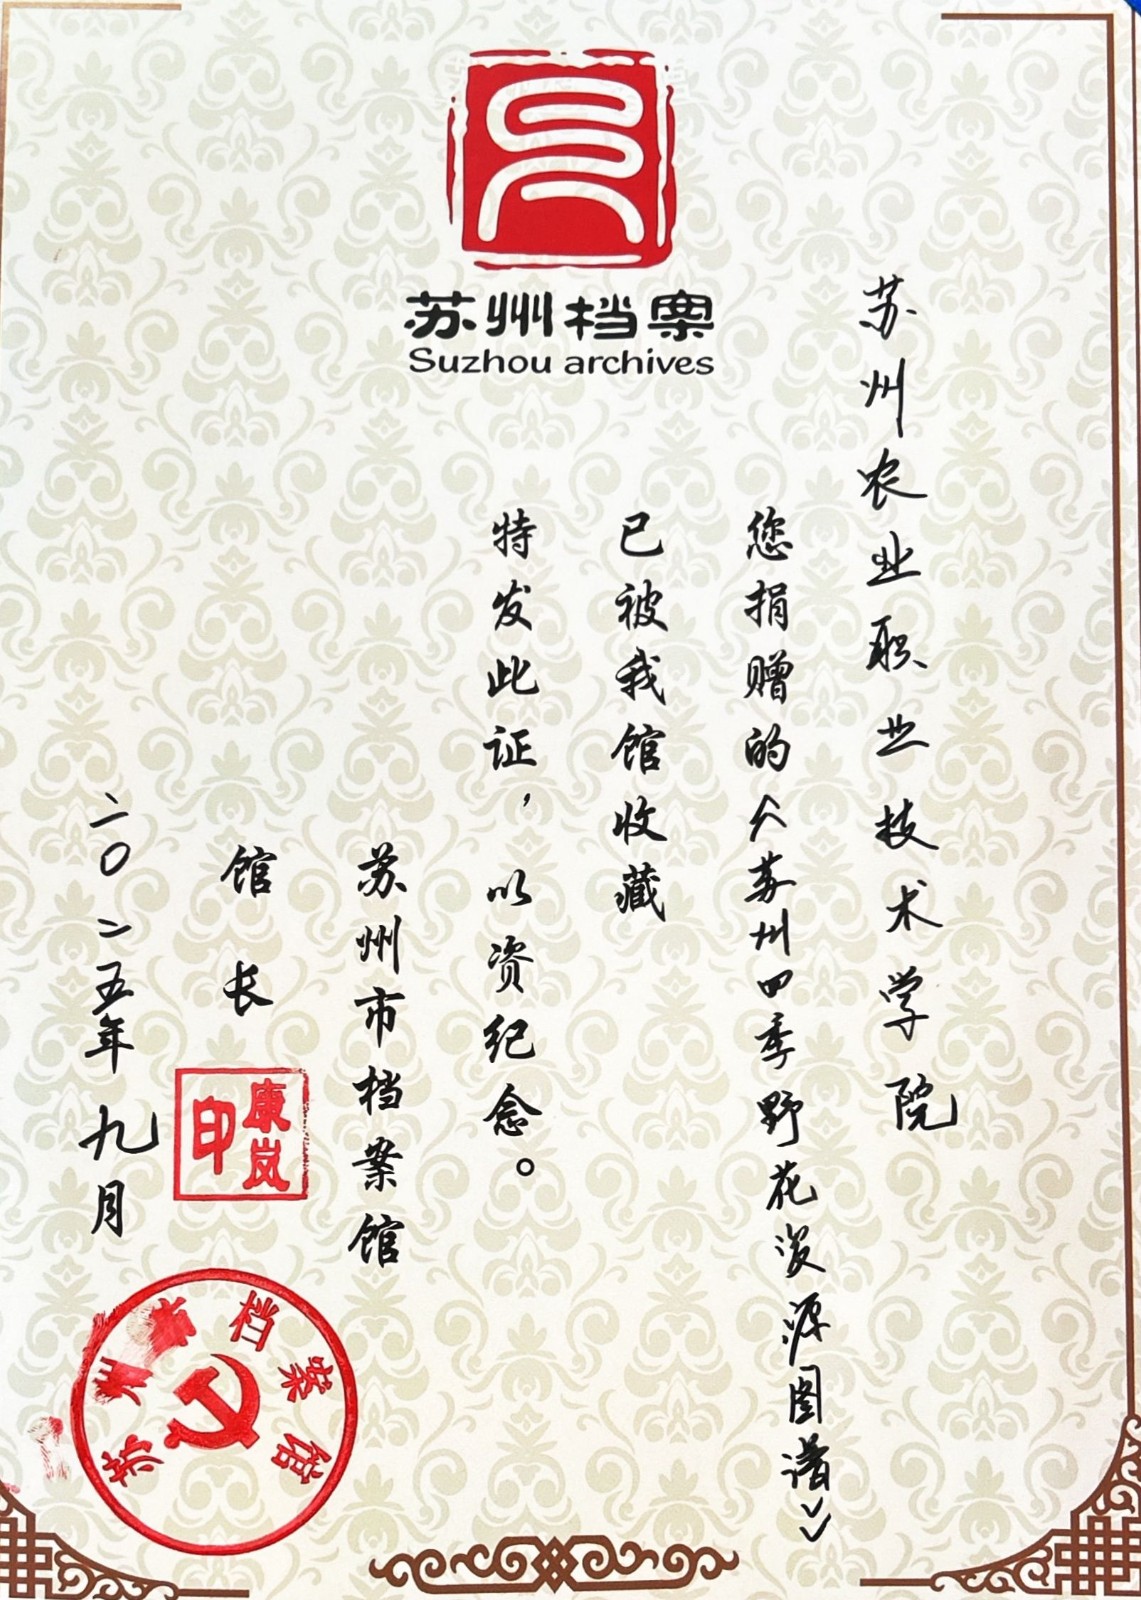 苏州档案
Suzhou archives
苏州农业职业技术学院
您捐赠的《苏州四季野花资源图谱》
已被我馆收藏
特发此证，以资纪念。
苏州市档案馆
馆长
康岚印
二〇二五年九月
苏州市档案馆